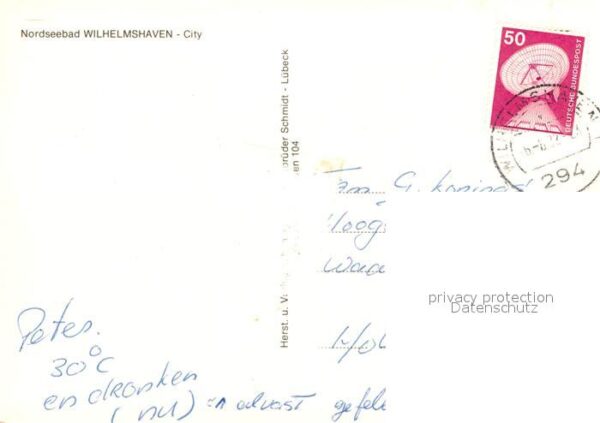 Nordseebad WILHELMSHAVEN - City
50
DEUTSCHE BUNDESPOST
294
Herst. u. V
brüder Schmidt - Lübeck
en 104
Fam G.
Hoog
Waa
privacy protection
Datenschutz
Peter.
30°C
en dronken
(nu) en alvast gefel